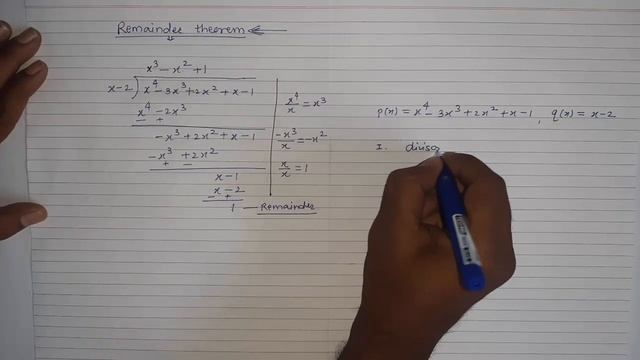 Remainder theorem
x³ - x² + 1
x-2 ) x⁴ - 3x³ + 2x² + x - 1
x⁴ - 2x³
- +
-x³ + 2x² + x - 1
-x³ + 2x²
+ -
x - 1
x - 2
- +
1 — Remainder
x⁴/x = x³
-x³/x = -x²
x/x = 1
p(x) = x⁴ - 3x³ + 2x² + x - 1, q(x) = x - 2
I. diviso